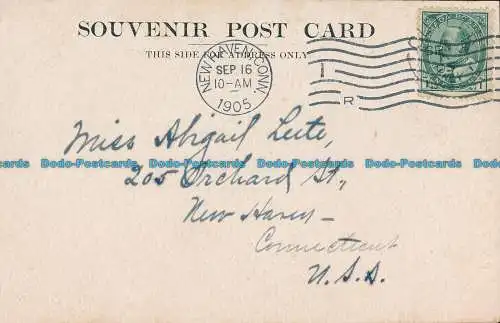 SOUVENIR POST CARD
THIS SIDE FOR ADDRESS ONLY
NEW HAVEN, CONN.
SEP 16
10-AM
1905
1
R
Miss Abigail Leete,
Dodo-Postcards Dodo-Postcards Dodo-Postcards Dodo-Postcards Dodo-Postcards
205 Orchard St.,
New Haven
Connecticut
U.S.A.